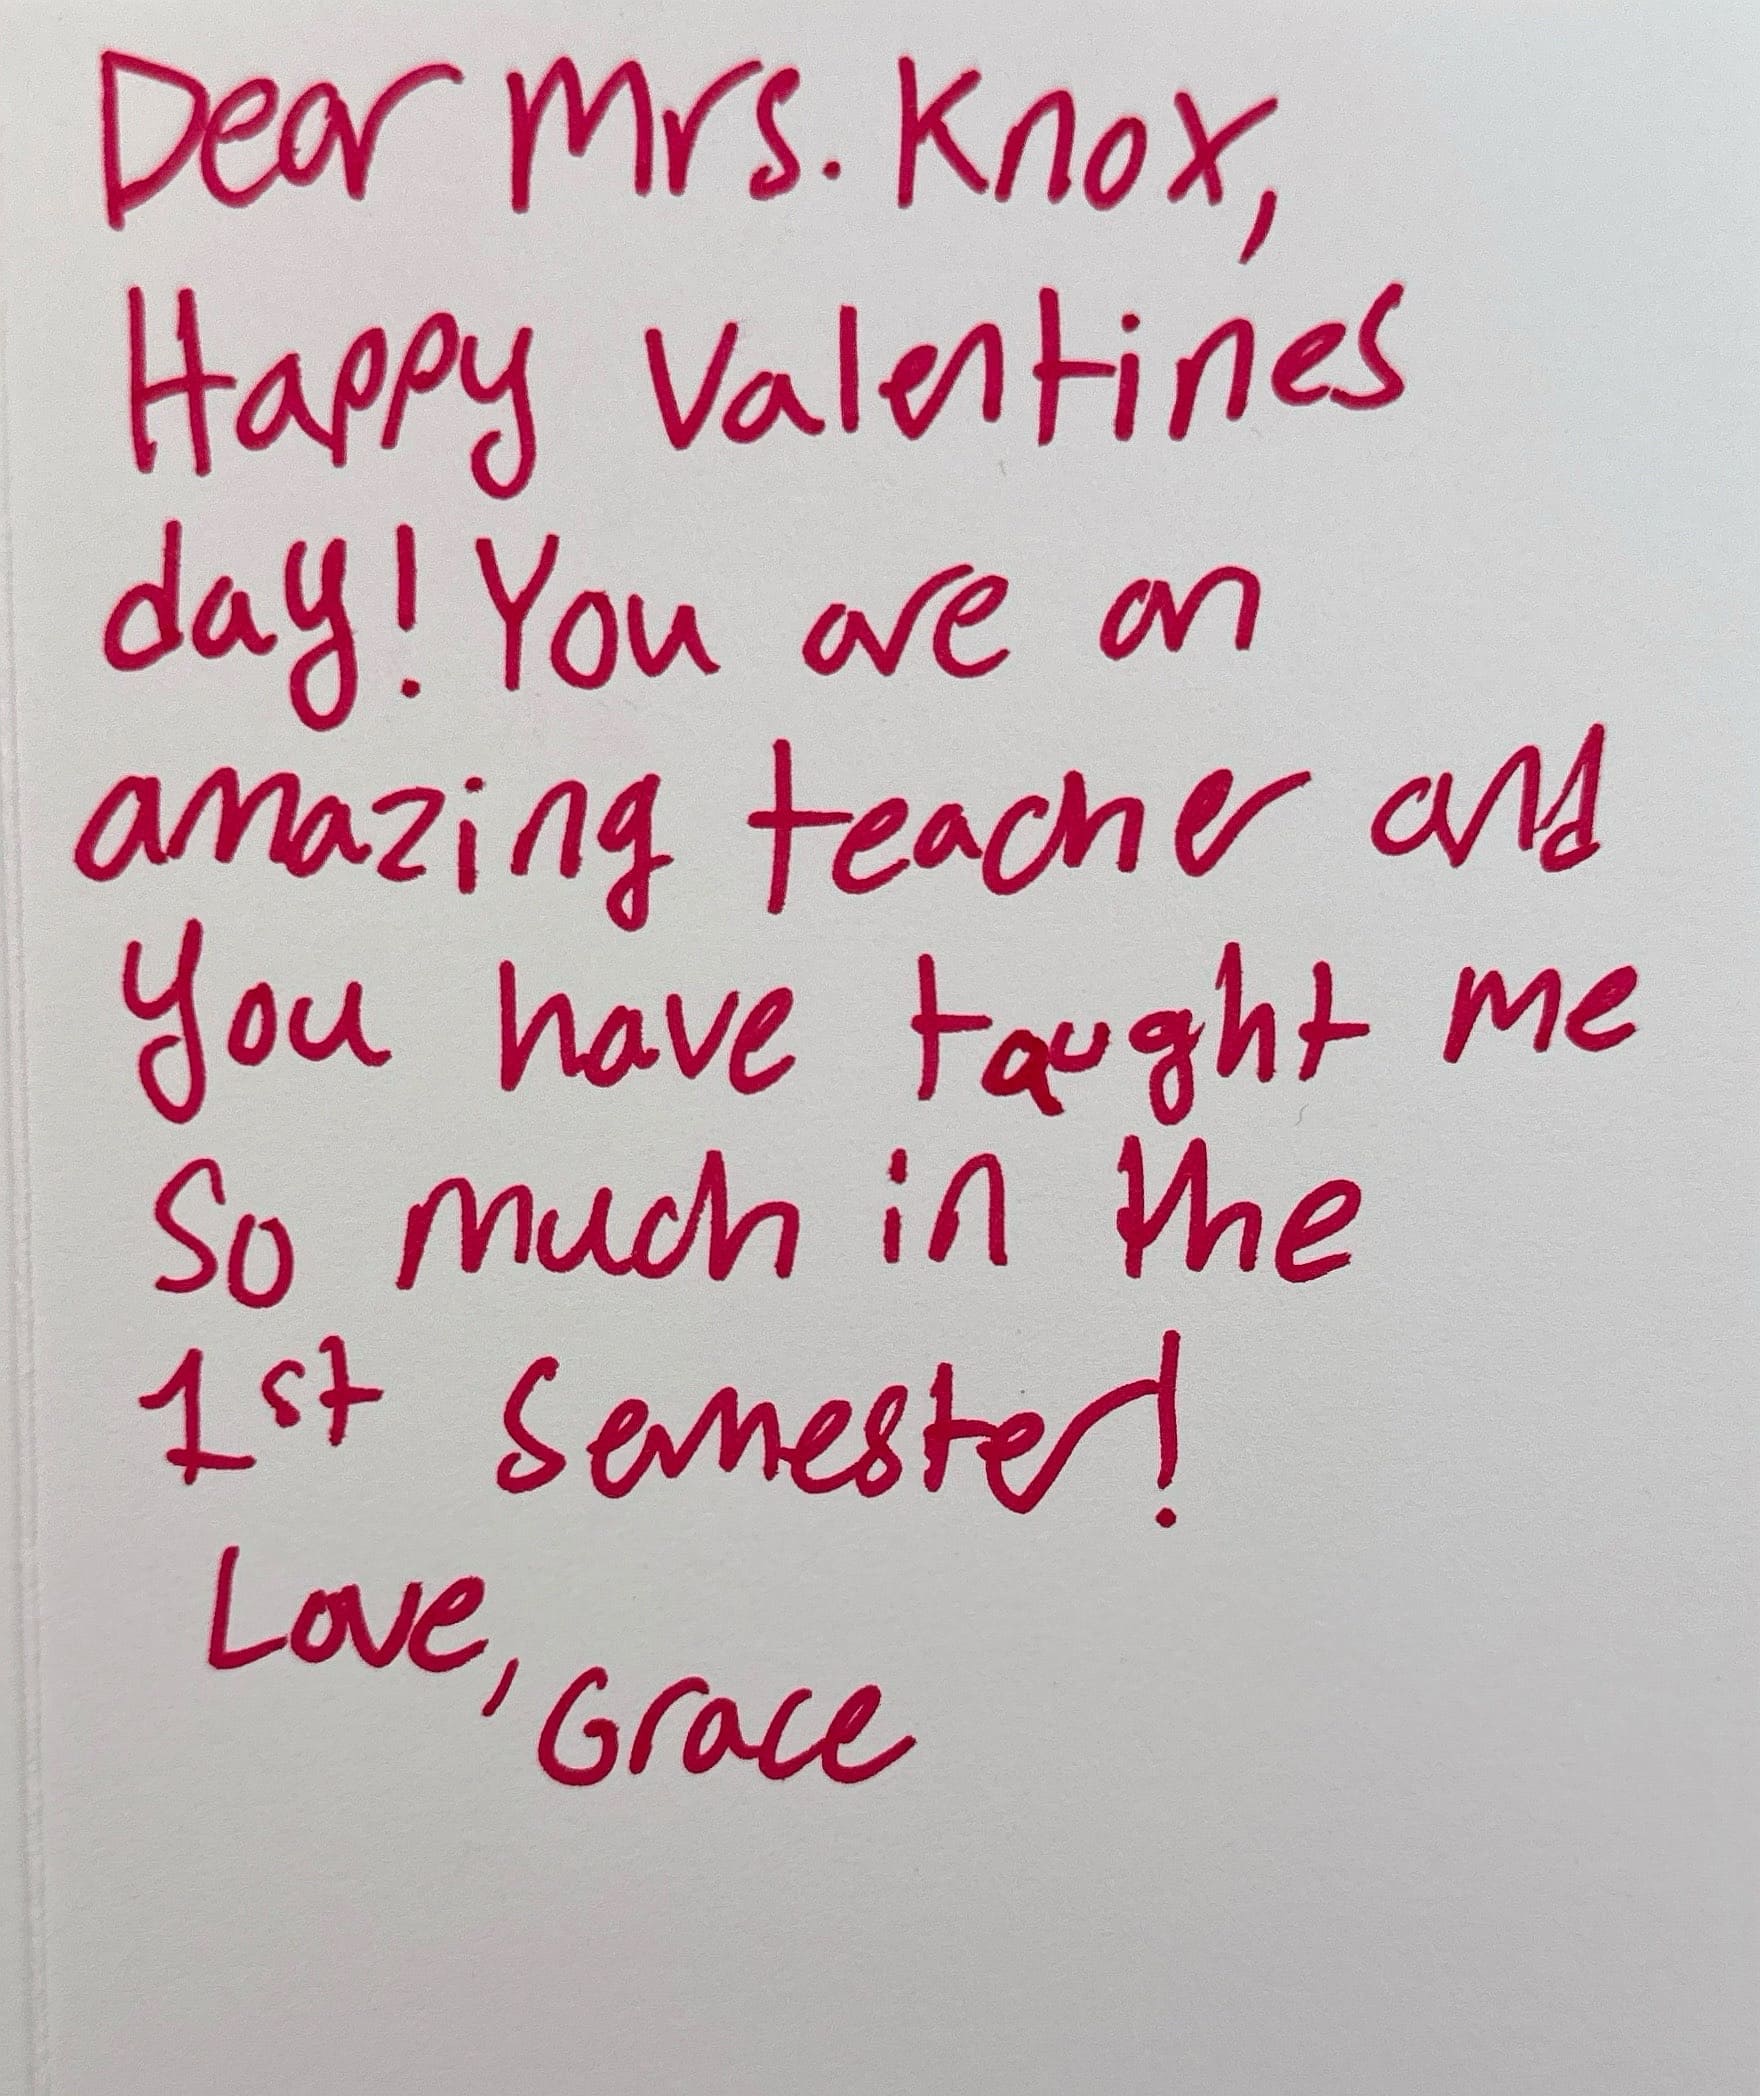 Dear Mrs. Knox,
Happy Valentines
day! You are an
amazing teacher and
you have taught me
So much in the
1st Semester!
Love,
Grace